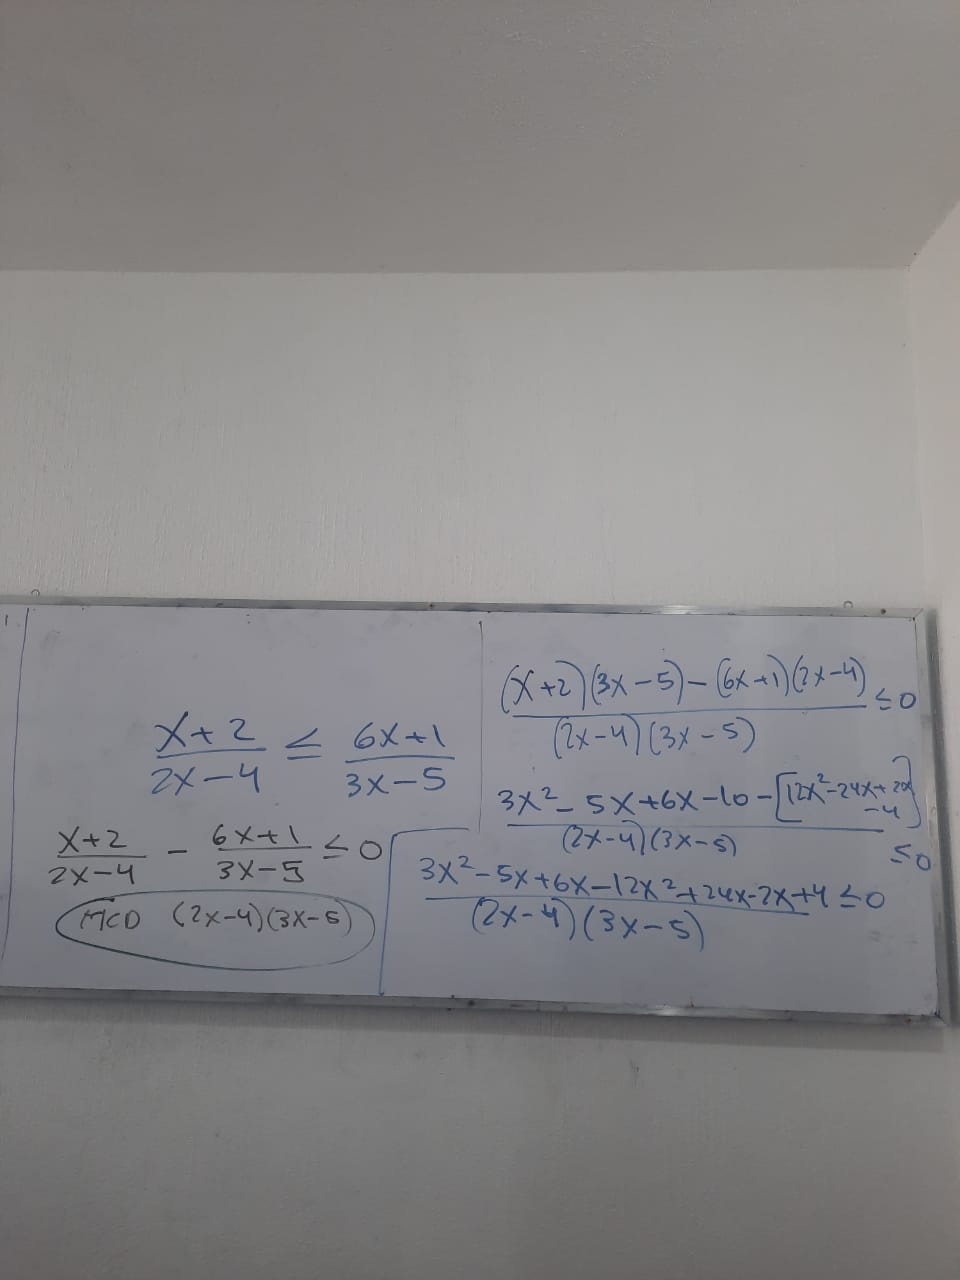 x+2/2x-4 ≤ 6x+1/3x-5
x+2/2x-4 - 6x+1/3x-5 ≤ 0
MCD (2x-4)(3x-5)
(x+2)(3x-5)-(6x+1)(2x-4)/(2x-4)(3x-5) ≤0
3x²-5x+6x-10-[12x²-24x+2x-4]/(2x-4)(3x-5) ≤0
3x²-5x+6x-12x²+24x-2x+4/(2x-4)(3x-5) ≤0